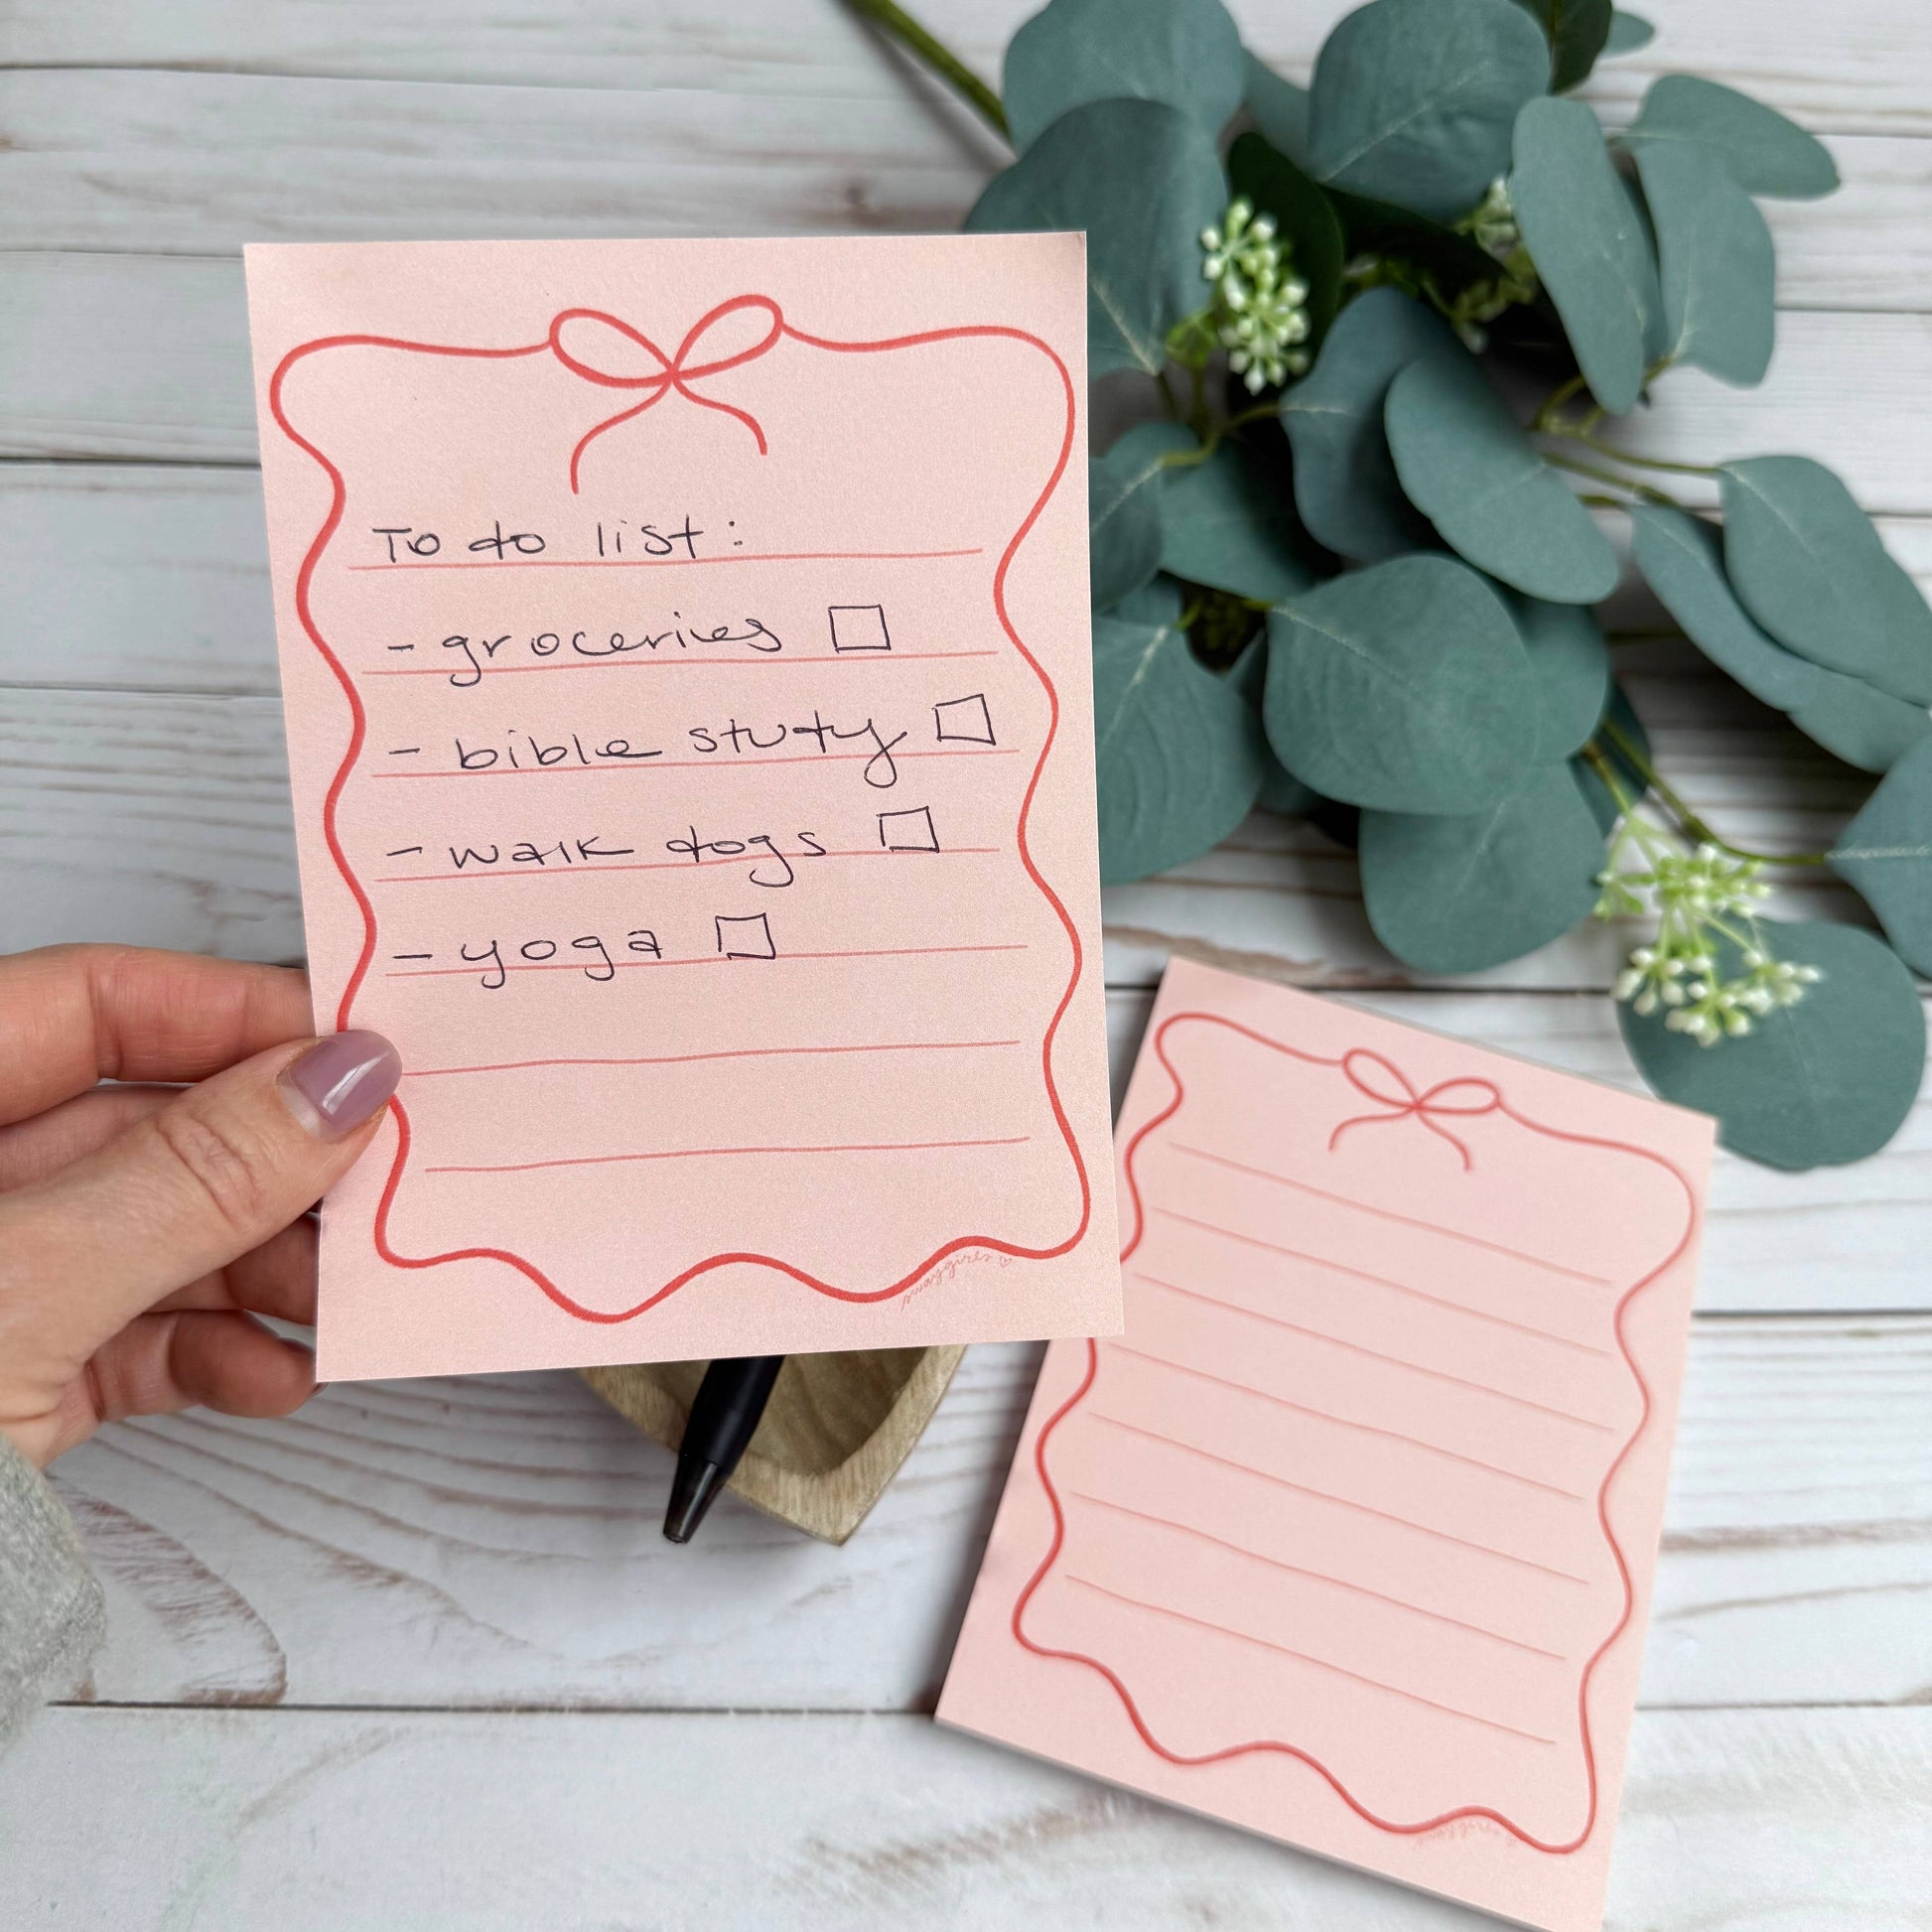 To do list:
- groceries □
- bible study □
- walk dogs □
- yoga □